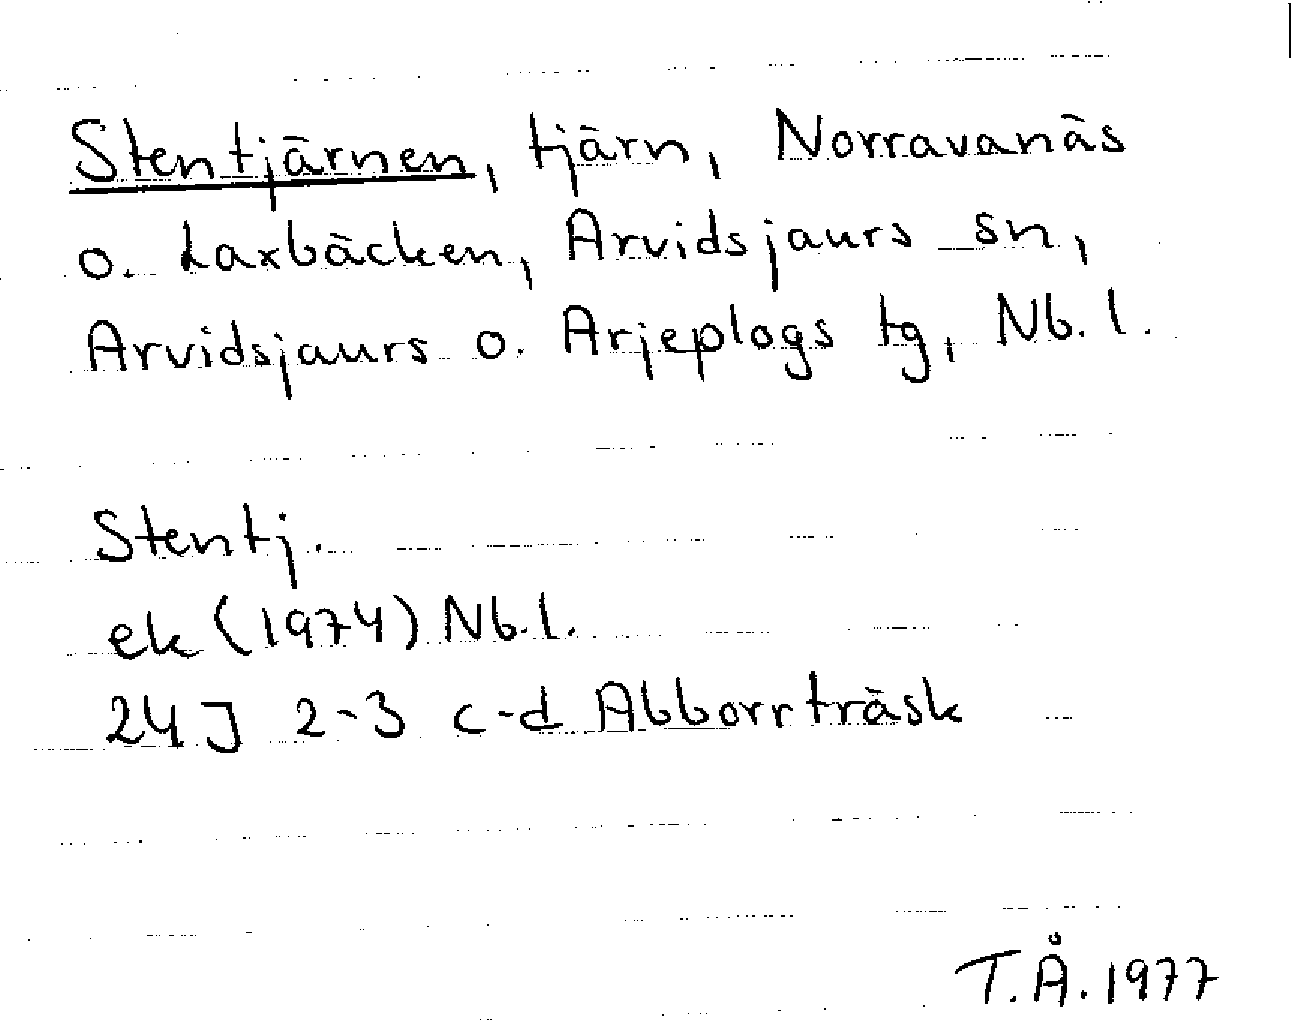 Stentjärnen, tjärn, Norravanäs
o. Laxbäcken, Arvidsjaurs sn,
Arvidsjaurs o. Arjeplogs tg, Nb. l.
Stentj.
ek (1974) Nb. l.
24J 2-3 c-d Abborrträsk
T.Å. 1977